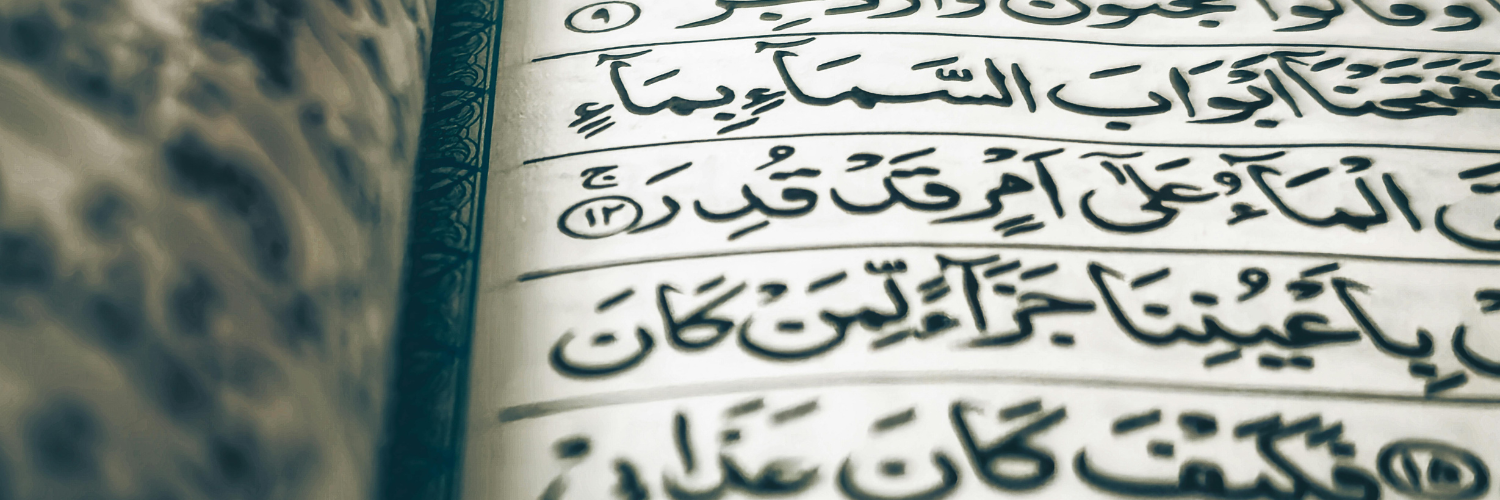 وَقَالُوا مَجْنُونٌ وَّازْدُجِرَ ۹
فَفَتَحْنَآ اَبْوَابَ السَّمَآءِ بِمَآءٍ
الْمَآءُ عَلٰٓى اَمْرٍ قَدْ قُدِرَ ج ۱۲
بِاَعْيُنِنَا جَزَآءً لِّمَنْ كَانَ
۱۵ فَكَيْفَ كَانَ عَذَابِيْ